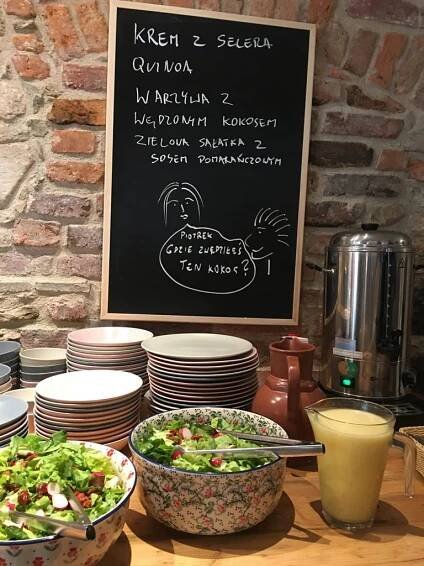 KREM Z SELERA
QUINOA
WARZYWA Z
WĘDZONYM KOKOSEM
ZIELONA SAŁATKA Z
SOSEM POMARAŃCZOWYM
PIOTREK
GDZIE ZWĘDZIŁEŚ
TEN KOKOS?